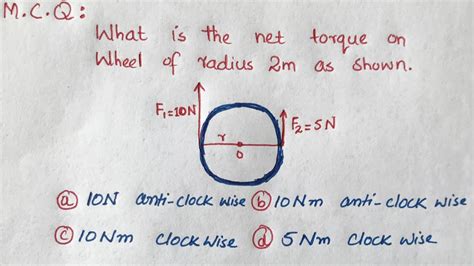 M.C.Q:
What is the net torque on
Wheel of radius 2m as shown.
F₁=10N
F₂=5N
r
O
ⓐ 10N anti-clock wise ⓑ 10 Nm anti-clock wise
ⓒ 10 Nm clock wise ⓓ 5 Nm clock wise